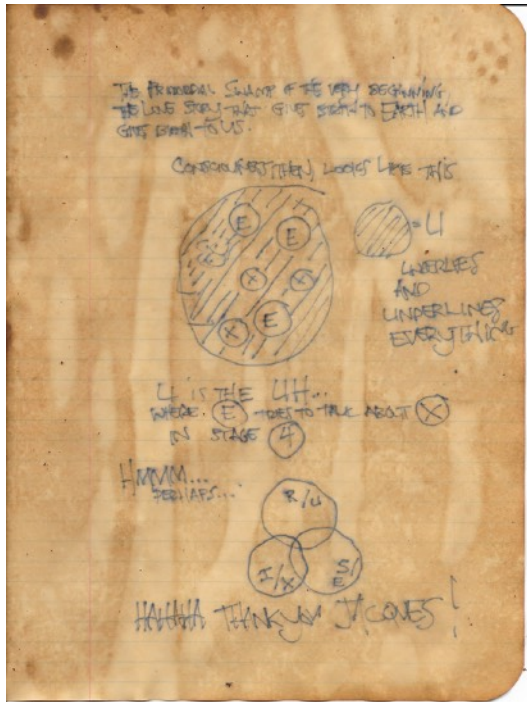 THE PRIMORDIAL SWAMP OF THE VERY BEGINNING,
THE LOVE STORY THAT GIVES BIRTH TO EARTH AND
GIVES BIRTH TO US.
CONSCIOUSNESS, THEN, LOOKS LIKE THIS
E
E
= U
E
X
X
UNDERLIES
AND
UNDERLINES
EVERYTHING
X
E
U IS THE UH...
WHERE E TRIES TO TALK ABOUT X
IN STAGE 4
HMMM...
PERHAPS...
R/U
I/X
S/
E
HAHAHA THANK YOU JACQUES!